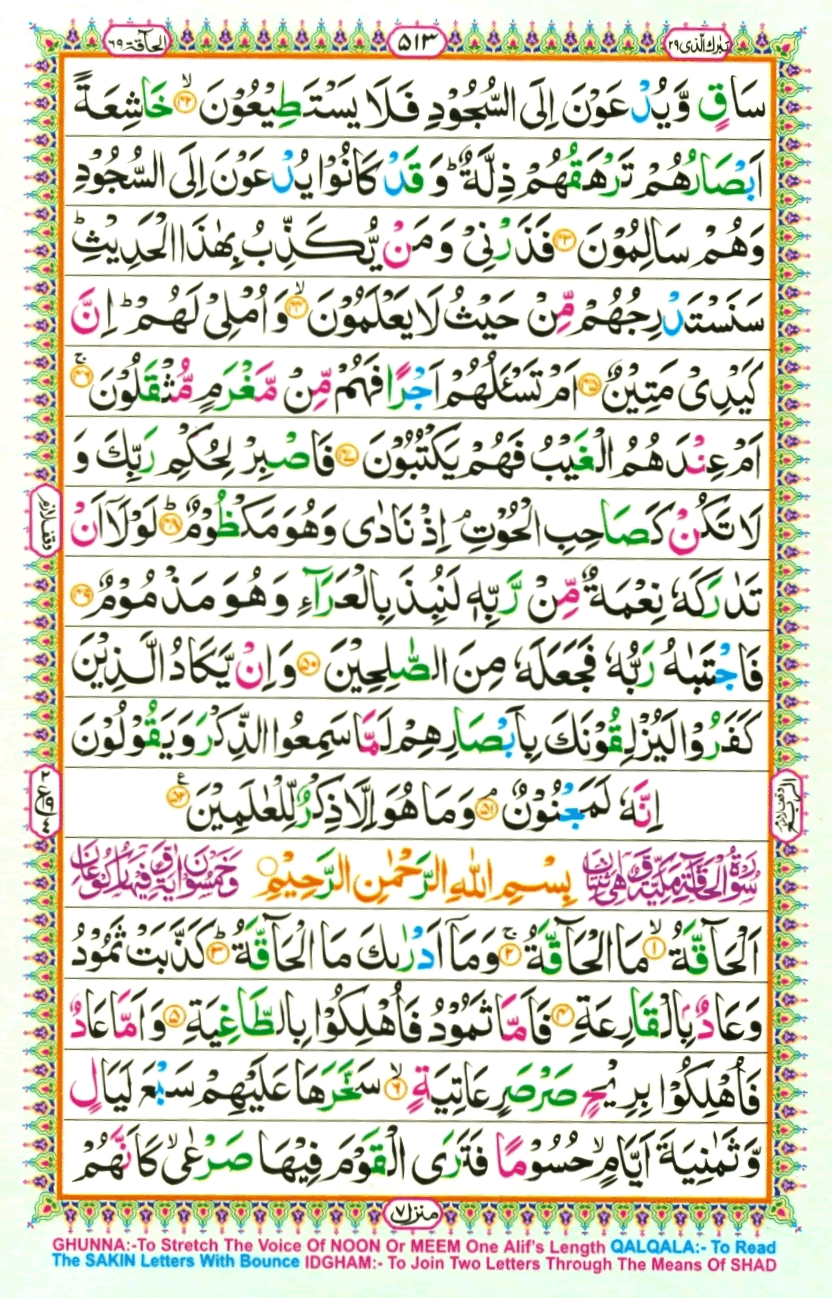 تبرك الذى ٢٩ ٥١٣ الحآقة ٦٩
سَاقٍ وَّيُدْعَوْنَ اِلَى السُّجُوْدِ فَلَا يَسْتَطِيْعُوْنَ ۙ‏﴿۴۲﴾ خَاشِعَةً
اَبْصَارُهُمْ تَرْهَقُهُمْ ذِلَّةٌ ؕ وَقَدْ كَانُوْا يُدْعَوْنَ اِلَى السُّجُوْدِ
وَهُمْ سَالِمُوْنَ ﴿۴۳﴾ فَذَرْنِىْ وَمَنْ يُّكَذِّبُ بِهٰذَا الْحَدِيْثِ ؕ
سَنَسْتَدْرِجُهُمْ مِّنْ حَيْثُ لَا يَعْلَمُوْنَ ۙ‏﴿۴۴﴾ وَاُمْلِىْ لَهُمْ ؕ اِنَّ
كَيْدِىْ مَتِيْنٌ ﴿۴۵﴾ اَمْ تَسْـَٔلُهُمْ اَجْرًا فَهُمْ مِّنْ مَّغْرَمٍ مُّثْقَلُوْنَ ۚ‏﴿۴۶﴾
اَمْ عِنْدَهُمُ الْغَيْبُ فَهُمْ يَكْتُبُوْنَ ﴿۴۷﴾ فَاصْبِرْ لِحُكْمِ رَبِّكَ وَ
لَا تَكُنْ كَصَاحِبِ الْحُوْتِ ۘ اِذْ نَادٰى وَهُوَ مَكْظُوْمٌ ؕ‏﴿۴۸﴾ لَوْلَاۤ اَنْ
تَدٰرَكَهٗ نِعْمَةٌ مِّنْ رَّبِّهٖ لَنُبِذَ بِالْعَرَآءِ وَهُوَ مَذْمُوْمٌ ﴿۴۹﴾
فَاجْتَبٰىهُ رَبُّهٗ فَجَعَلَهٗ مِنَ الصّٰلِحِيْنَ ﴿۵۰﴾ وَاِنْ يَّكَادُ الَّذِيْنَ
كَفَرُوْا لَيُزْلِقُوْنَكَ بِاَبْصَارِهِمْ لَمَّا سَمِعُوا الذِّكْرَ وَيَقُوْلُوْنَ
اِنَّهٗ لَمَجْنُوْنٌ ۘ‏﴿۵۱﴾ وَمَا هُوَ اِلَّا ذِكْرٌ لِّلْعٰلَمِيْنَ ﴿۵۲﴾
سُوْرَةُ الْحَآقَّةِ مَكِّيَّةٌ وَّهِىَ ثِنْتَانِ بِسْمِ اللهِ الرَّحْمٰنِ الرَّحِيْمِ وَخَمْسُوْنَ اٰيَةً وَّفِيْهَا رُكُوْعَانِ
اَلْحَآقَّةُ ۙ‏﴿۱﴾ مَا الْحَآقَّةُ ۚ‏﴿۲﴾ وَمَاۤ اَدْرٰىكَ مَا الْحَآقَّةُ ؕ‏﴿۳﴾ كَذَّبَتْ ثَمُوْدُ
وَعَادٌۢ بِالْقَارِعَةِ ﴿۴﴾ فَاَمَّا ثَمُوْدُ فَاُهْلِكُوْا بِالطَّاغِيَةِ ﴿۵﴾ وَاَمَّا عَادٌ
فَاُهْلِكُوْا بِرِيْحٍ صَرْصَرٍ عَاتِيَةٍ ۙ‏﴿۶﴾ سَخَّرَهَا عَلَيْهِمْ سَبْعَ لَيَالٍ
وَّثَمٰنِيَةَ اَيَّامٍ ۙ حُسُوْمًا فَتَرَى الْقَوْمَ فِيْهَا صَرْعٰى ۙ كَاَنَّهُمْ
منزل ٧
GHUNNA:-To Stretch The Voice Of NOON Or MEEM One Alif's Length QALQALA:- To Read
The SAKIN Letters With Bounce IDGHAM:- To Join Two Letters Through The Means Of SHAD